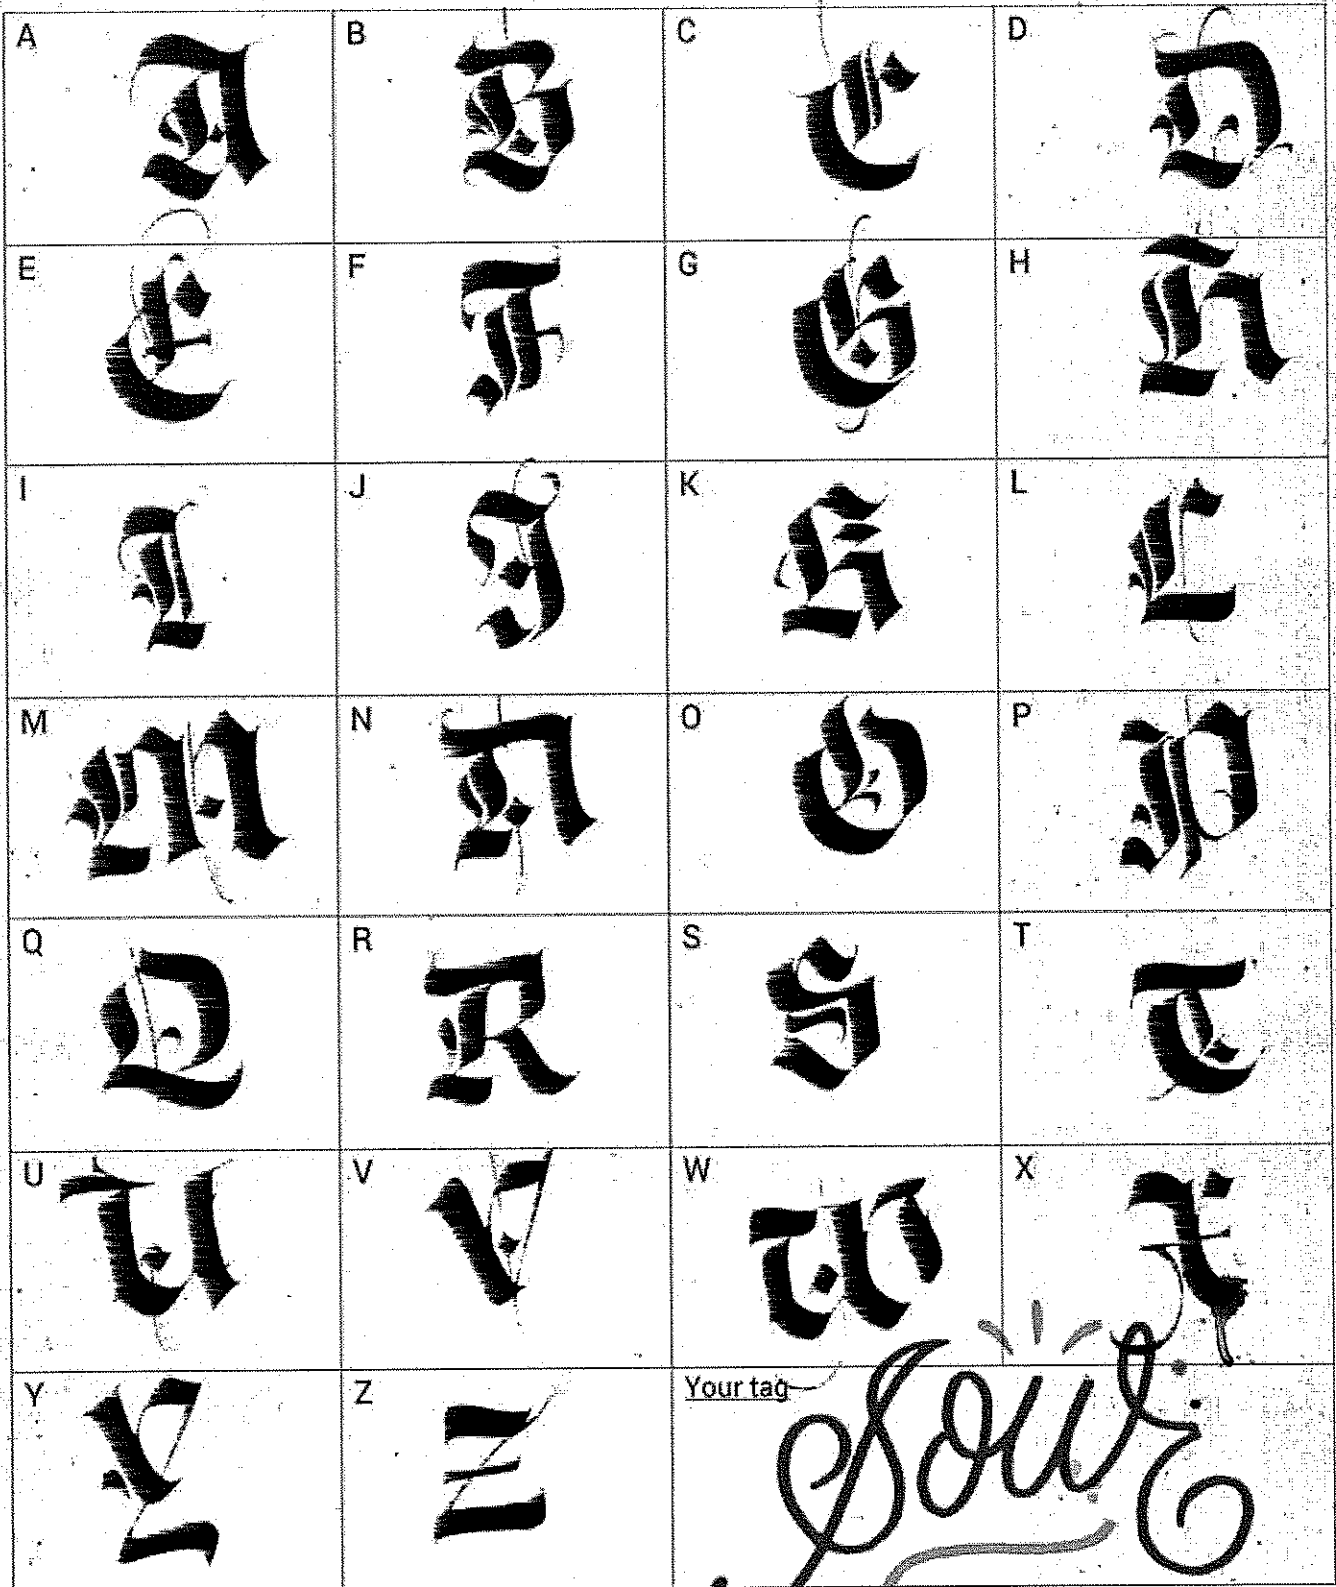 A A B B C C D D
E E F F G G H H
I I J J K K L L
M M N N O O P P
Q Q R R S S T T
U U V V W W X X
Y Y Z Z Your tag Sour